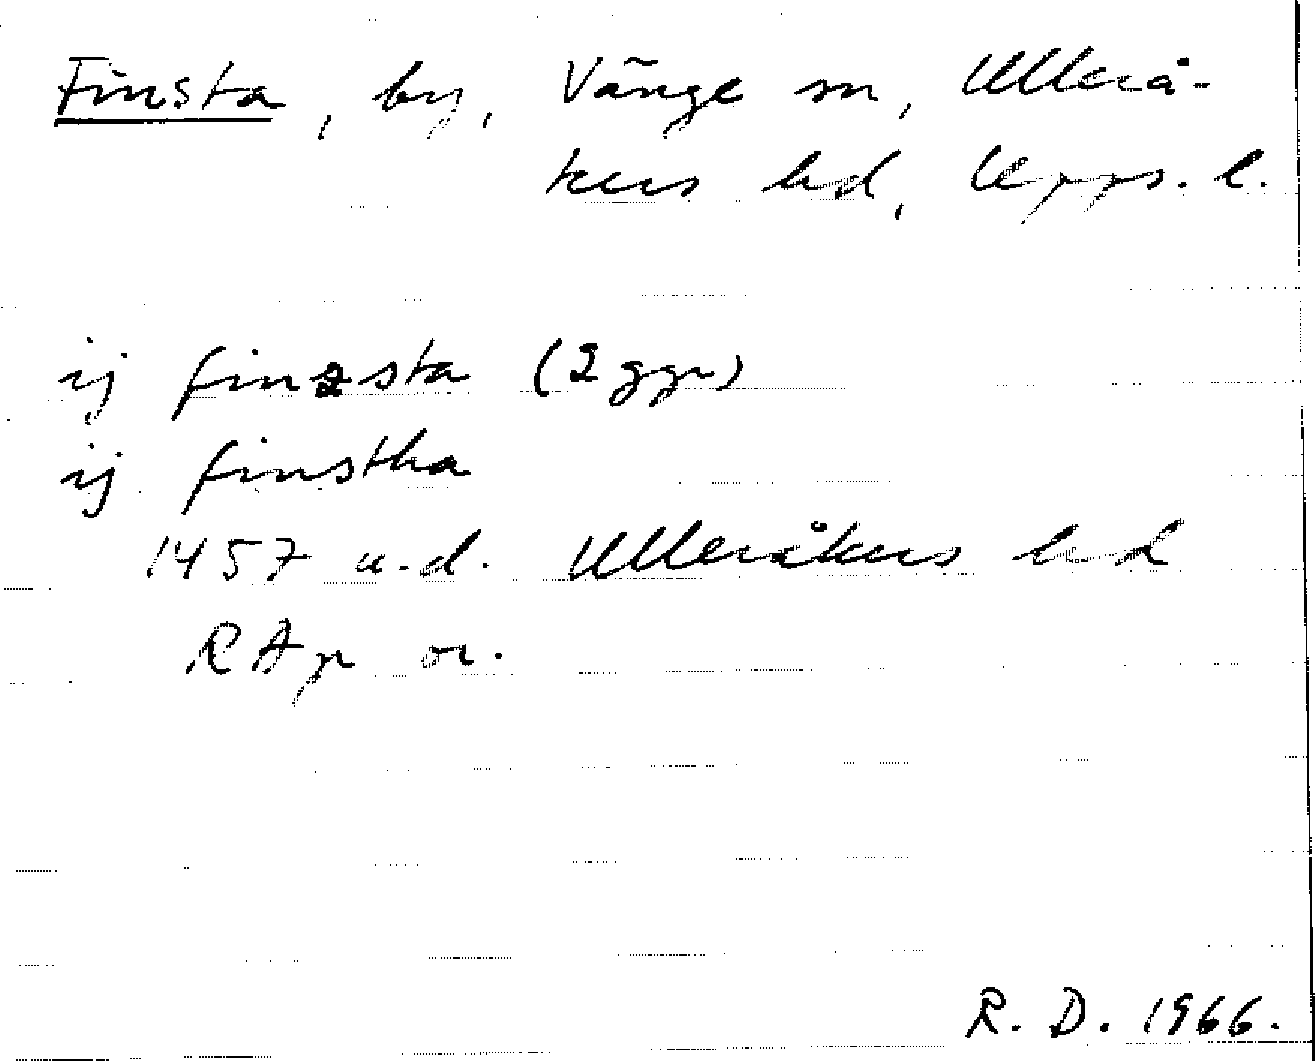 Finsta, by, Vänge sn, Ullerå-
kers hd, Upps. l.
ij finzsta (2 ggr)
ij finstha
1457 u.d. Ulleråkers hd
RAp or.
R. D. 1966.